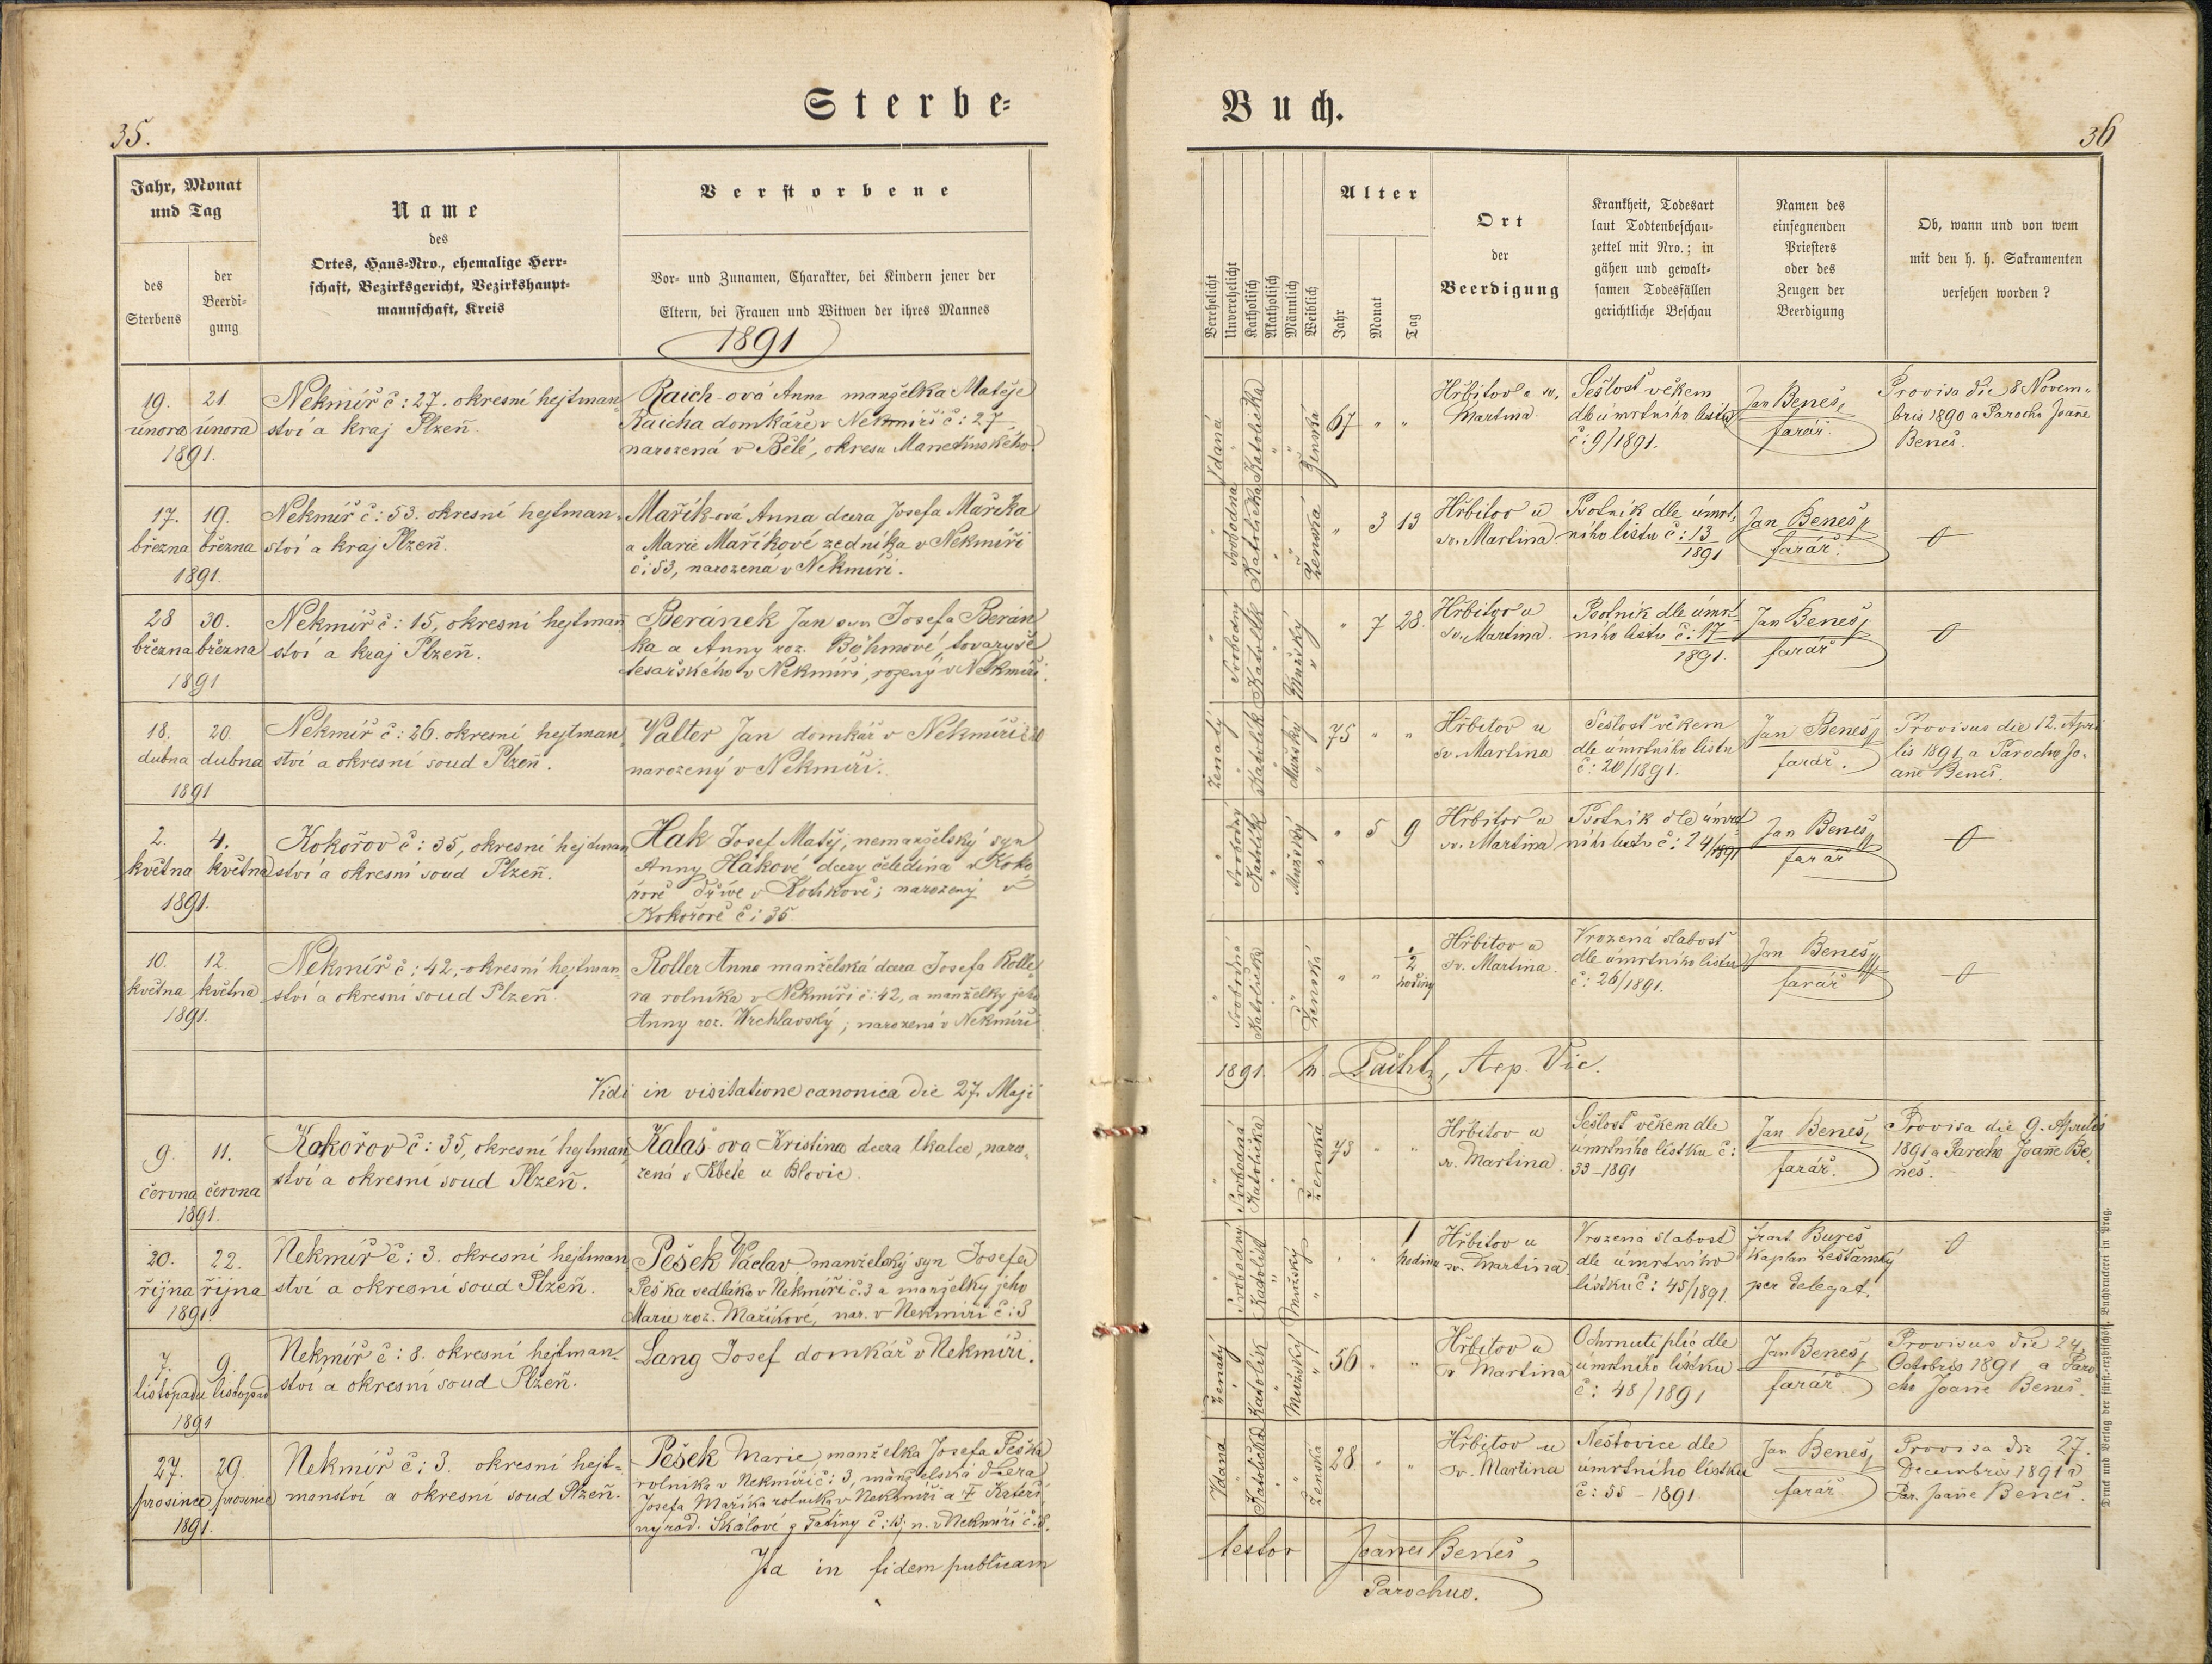 Sterbe-
35.
Jahr, Monat
und Tag
des
Sterbens
der
Beerdi-
gung
Name
des
Ortes, Haus-Nro., ehemalige Herr-
schaft, Bezirksgericht, Bezirkshaupt-
mannschaft, Kreis
Verstorbene
Vor- und Zunamen, Charakter, bei Kindern jener der
Eltern, bei Frauen und Witwen der ihres Mannes
1891
19. 21
února února
1891.
Nekmíř č: 27. okresní hejtman-
ství a kraj Plzeň.
Raich-ová Anna manželka Matěje
Raicha domkáře v Nekmíři č: 27,
narozená v Bělé, okresu Manetínského.
17. 19.
března března
1891.
Nekmíř č: 53. okresní hejtman-
ství a kraj Plzeň.
Mařík-ová Anna dcera Josefa Maříka
a Marie Maříkové zedníka v Nekmíři
č: 53, narozená v Nekmíři.
28 30.
března března
1891
Nekmíř č: 15, okresní hejtman
ství a kraj Plzeň.
Beránek Jan syn Josefa Berán
ka a Anny roz. Böhmové, tovaryše
tesařského v Nekmíři, rozený v Nekmíři.
18. 20.
dubna dubna
1891
Nekmíř č: 26. okresní hejtman
ství a okresní soud Plzeň.
Valter Jan domkář v Nekmíři
narozený v Nekmíři.
2. 4.
května května
1891.
Kokořov č: 35, okresní hejdman
ství a okresní soud Plzeň.
Hak Josef Matěj, nemanželský syn
Anny Hákové dcery čeledína v Koko
řově dříve v ; narozený v
Kokořově č: 35
10. 12.
května května
1891.
Nekmíř č: 42, okresní hejtman-
ství a okresní soud Plzeň.
Roller Anna manželská dcera Josefa Rolle-
ra rolníka v Nekmíři č. 42, a manželky jeho
Anny roz. Wrchlavský; narozená v Nekmíři
Vidi in visitatione canonica die 27. Maji
9. 11.
června června
1891.
Kokořov č: 35, okresní hejtman
ství a okresní soud Plzeň.
Kalaš-ova Kristina dcera tkalce, naro-
zená v Kbele u Blovic.
20. 22.
října října
1891.
Nekmíř č: 3. okresní hejtman
ství a okresní soud Plzeň.
Pešek Václav manželský syn Josefa
Peška sedláka v Nekmíři č. 3 a manželky jeho
Marie roz. Maříkové, nar. v Nekmíři č: 3
7. 9.
listopadu listopad
1891
Nekmíř č: 8. okresní hejtman-
ství a okresní soud Plzeň.
Lang Josef domkář v Nekmíři.
27. 29.
prosince prosince
1891.
Nekmíř č: 3. okresní hejt-
manství a okresní soud Plzeň.
Pešek Marie, manželka Josefa Peška
rolníka v Nekmíři č: 3, manželská dcera
Josefa Maříka rolníka v Nekmíři a Kateři
ny rod. Skálové z Tatiny č: 13; n. v Nekmíři č. 8.
Ita in fidem publicam
Buch.
36
Verehelicht
Unverehelicht
Katholisch
Akatholisch
Männlich
Weiblich
Alter
Jahr
Monat
Tag
Ort
der
Beerdigung
Krankheit, Todesart
laut Todtenbeschau-
zettel mit Nro.; in
gähen und gewalt-
samen Todesfällen
gerichtliche Beschau
Namen des
einsegnenden
Priesters
oder des
Zeugen der
Beerdigung
Ob, wann und von wem
mit den h. h. Sakramenten
versehen worden?
Vdaná
Katolička
Ženská
67 " "
Hřbitov u sv.
Martina.
Sešlosť věkem
dle úmrtního listu
č: 9/1891.
Jan Beneš,
farář.
Provisa die 8 Novem-
bris 1890 a Parocho Joañe
Beneš.
Svobodna
Katolička
Ženská
" 3 13
Hřbitov u
sv. Martina
Psotník dle úmrt-
ního listu č: 13
1891
Jan Beneš,
farář.
Svobodný
Katolík
Mužský
" 7 28.
Hřbitov u
sv. Martina.
Psotník dle úmrt-
ního listu č: 17
1891.
Jan Beneš,
farář
Ženatý
Katolík
Mužský
75 " "
Hřbitov u
sv. Martina
Sešlosť věkem
dle úmrtního listu
č: 20/1891.
Jan Beneš,
farář.
Provisus die 12. Apri
lis 1891 a Parocho Jo-
añe Beneš.
Svobodný
Katolík
Mužský
" 5 9
Hřbitov u
sv. Martina
Psotník dle úmrt
ního listu č: 24/1891
Jan Beneš,
farář
Svobodná
Katolička
Ženská
" " 2
hodiny
Hřbitov u
sv. Martina.
Vrozená slabosť
dle úmrtního listu
č: 26/1891.
Jan Beneš,
farář
1891. Vic.
Svobodná
Katolička
Ženská
73 " "
Hřbitov u
sv. Martina.
Sešlosť věkem dle
úmrtního lístku č:
33-1891
Jan Beneš,
farář.
Provisa die 9. Aprilis
1891 a Parocho Joañe Be-
neš.
Svobodný
Katolík
Mužský
1
hodinu
Hřbitov u
sv. Martina.
Vrozená slabosť
dle úmrtního
lístku č: 45/1891.
frant. Bureš
kaplan Ledčanský
per delegat.
Ženatý
Katolík
Mužský
56 " "
Hřbitov u
sv Martina
Ochrnutí plic dle
úmrtního lístku
č: 48/1891
Jan Beneš,
farář
Provisus die 24.
Octobris 1891 a Paro
cho Joañe Beneš.
Vdaná
Katolička
Ženská
28 " "
Hřbitov u
sv. Martina
Neštovice dle
úmrtního lístku
č: 55-1891
Jan Beneš,
farář
Provisa die 27.
Decembris 1891 a
Par. Joañe Beneš.
testor Joañes Beneš,
Parochus.
Druck und Verlag der fürst-erzbischöfl. Buchdruckerei in Prag.